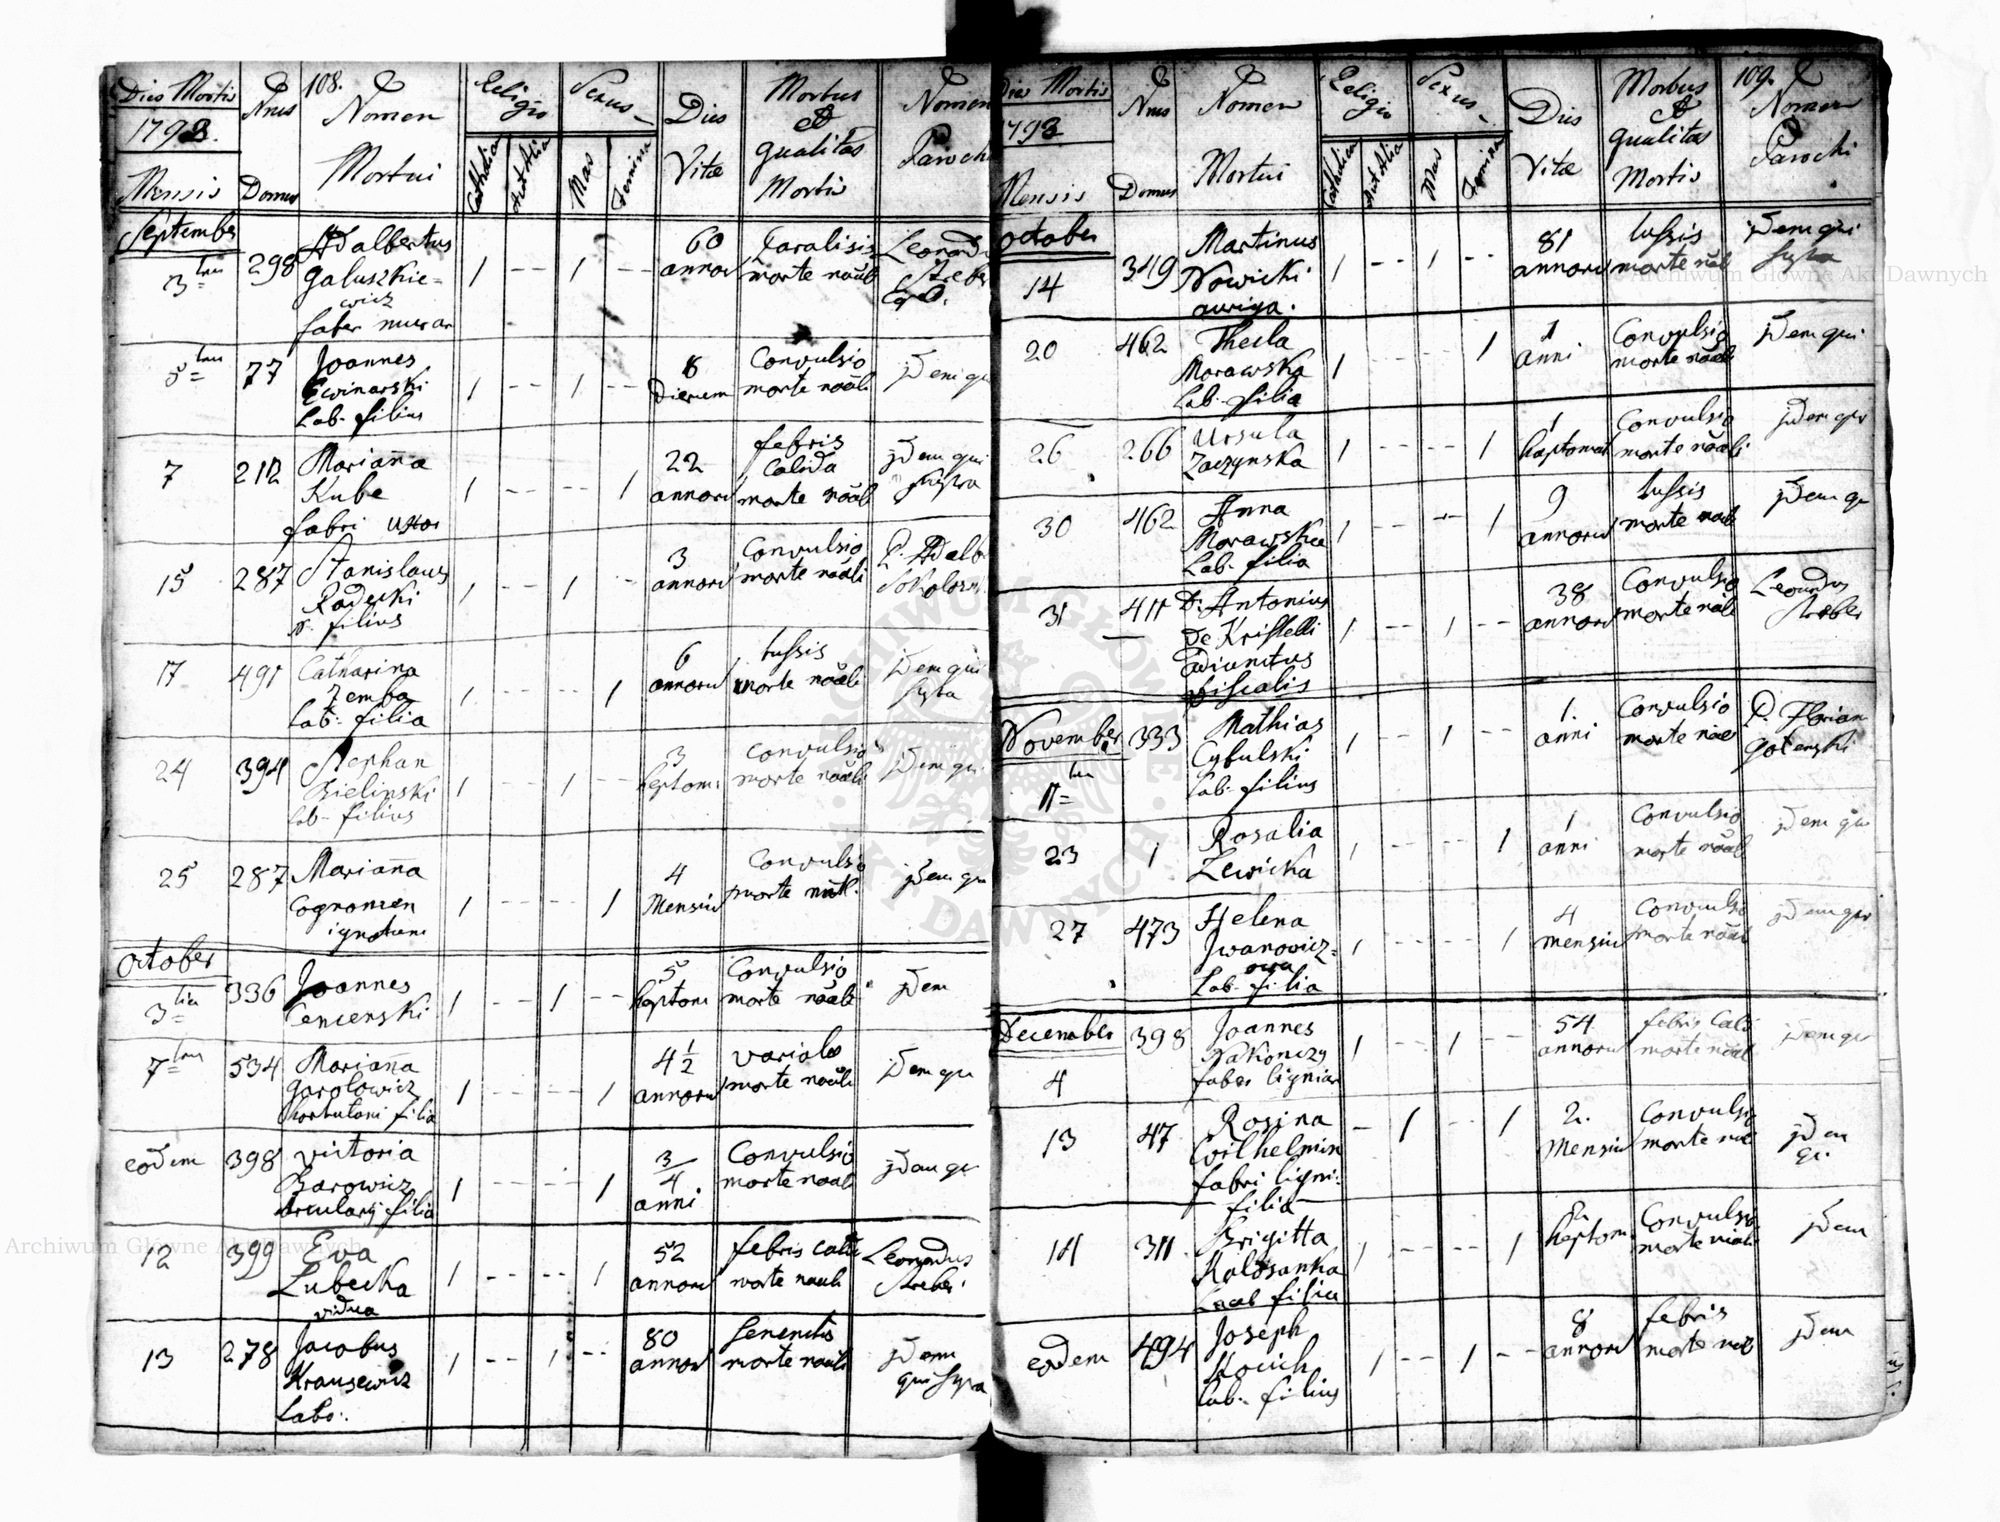 108.
Dies Mortis
1793.
Mensis
Nrus
Domus
Nomen
Mortui
Religio
Catholica
Aut Alia
Sexus
Mas
Femina
Dies
Vitæ
Morbus
et
qualitas
Mortis
Nomen
Parochi
September
3
298
Adalbertus
Galuszkie=
wicz
faber murar
1 1
60
annoru
Paralisis
morte nãali
5
77
Joannes
Lab. filius
1 -- 1 --
8
Dierum
Convulsio
morte nãali
jdem qui
7
212
Marianna
Kube
fabri uxor
1 -- -- 1
22
annoru
febris
Calida
morte nãali
jdem qui
supra
15
287
Stanislaus
Radecki
N. filius
1 -- 1 --
3
annoru
Convulsio
morte nãali
P. Adalb
17
491
Catharina
Zemba
Lab: filia
1 -- -- 1
6
annoru
tussis
morte nãali
jdem qui
supra
24
394
Stephan
Bielinski
Lab- filius
1 -- 1 --
3
septom:
Convulsio
morte nãali
jdem qui
25
287
Marianna
cognomen
ignotum
1 -- -- 1
4
Mensiu
Convulsio
morte nãtl.
jdem qu
October
3
336
Joannes
Cencerski
1 -- 1 --
5
heptom
Convulsio
morte nãali
jdem
7
534
Marianna
Garolowicz
hortulani filia
1 -- -- 1
4 1/2
annoru
variolæ
morte nãali
jdem qu
eodem
398
victoria
Barowicz
arcularij filia
1 -- -- 1
3/4
anni
Convulsio
morte nãali
jdem qu
12
399
Eva
Lubecka
vidua
1 -- -- 1
52
annoru
febris cali
morte nãali
Leonardus
13
278
Jacobus
Krausewicz
Labo:.
1 -- 1 --
80
annoru
morte nãali
jdem
qui supra
109.
Dies Mortis
1793
Mensis
Nrus
Domus
Nomen
Mortui
Religio
Catholica
Aut Alia
Sexus
Mas
Femina
Dies
Vitæ
Morbus
et
qualitas
Mortis
Nomen
Parochi
October
14
349
Martinus
Nowicki
auriga.
1 -- 1 --
81
annoru
tussis
morte nãli
jdem qui
supra
20
462
Thecla
Morawska
Lab- filia
1 -- -- 1
1
anni
Convulsio
morte nãali
jdem qui
26
266
Ursula
Zaczynska
1 -- -- 1
1
heptomad
Convulsio
morte nãali
jdem qui
30
462
Anna
Morawska
Lab. filia
1 -- -- 1
9
annoru
tussis
morte nãali
jdem qu
31
411
D. Antonius
De Kristelli
adiunctus
fiscalis
1 -- 1 --
38
annoru
Convulsio
morte nãli
Leonardus
November
11
333
Mathias
Cybulski
Lab. filius
1 -- 1 --
1.
anni
Convulsio
morte nãli
P. Florian
23
1
Rosalia
Lewicka
1 -- -- 1
1
anni
Convulsio
morte nãali
jdem qui
27
473
Helena
Jwanowicz=
owa
Lab- filia
1 -- -- 1
4
mensiu
Convulsio
morte nãali
jdem qui
December
4
398
Joannes
Nakonczy
faber lignar
1 -- 1 --
54
annoru
febris Cali
morte nãali
jdem qui
13
47
Rosina
Wilhelmin
fabri ligni:
filia
-- 1 -- 1
2.
Mensiu
Convulsio
morte nãl
jdem
qui
14
311
Brigitta
Lab filia
1 -- -- 1
heptom
Convulsio
morte nãali
jdem
eodem
494
Joseph
Lab. filius
1 -- 1 --
8
annoru
febris
morte nãl
jdem
Archiwum Główne Akt Dawnych
Archiwum Główne Akt Dawnych
ARCHIWUM GŁÓWNE AKT DAWNYCH